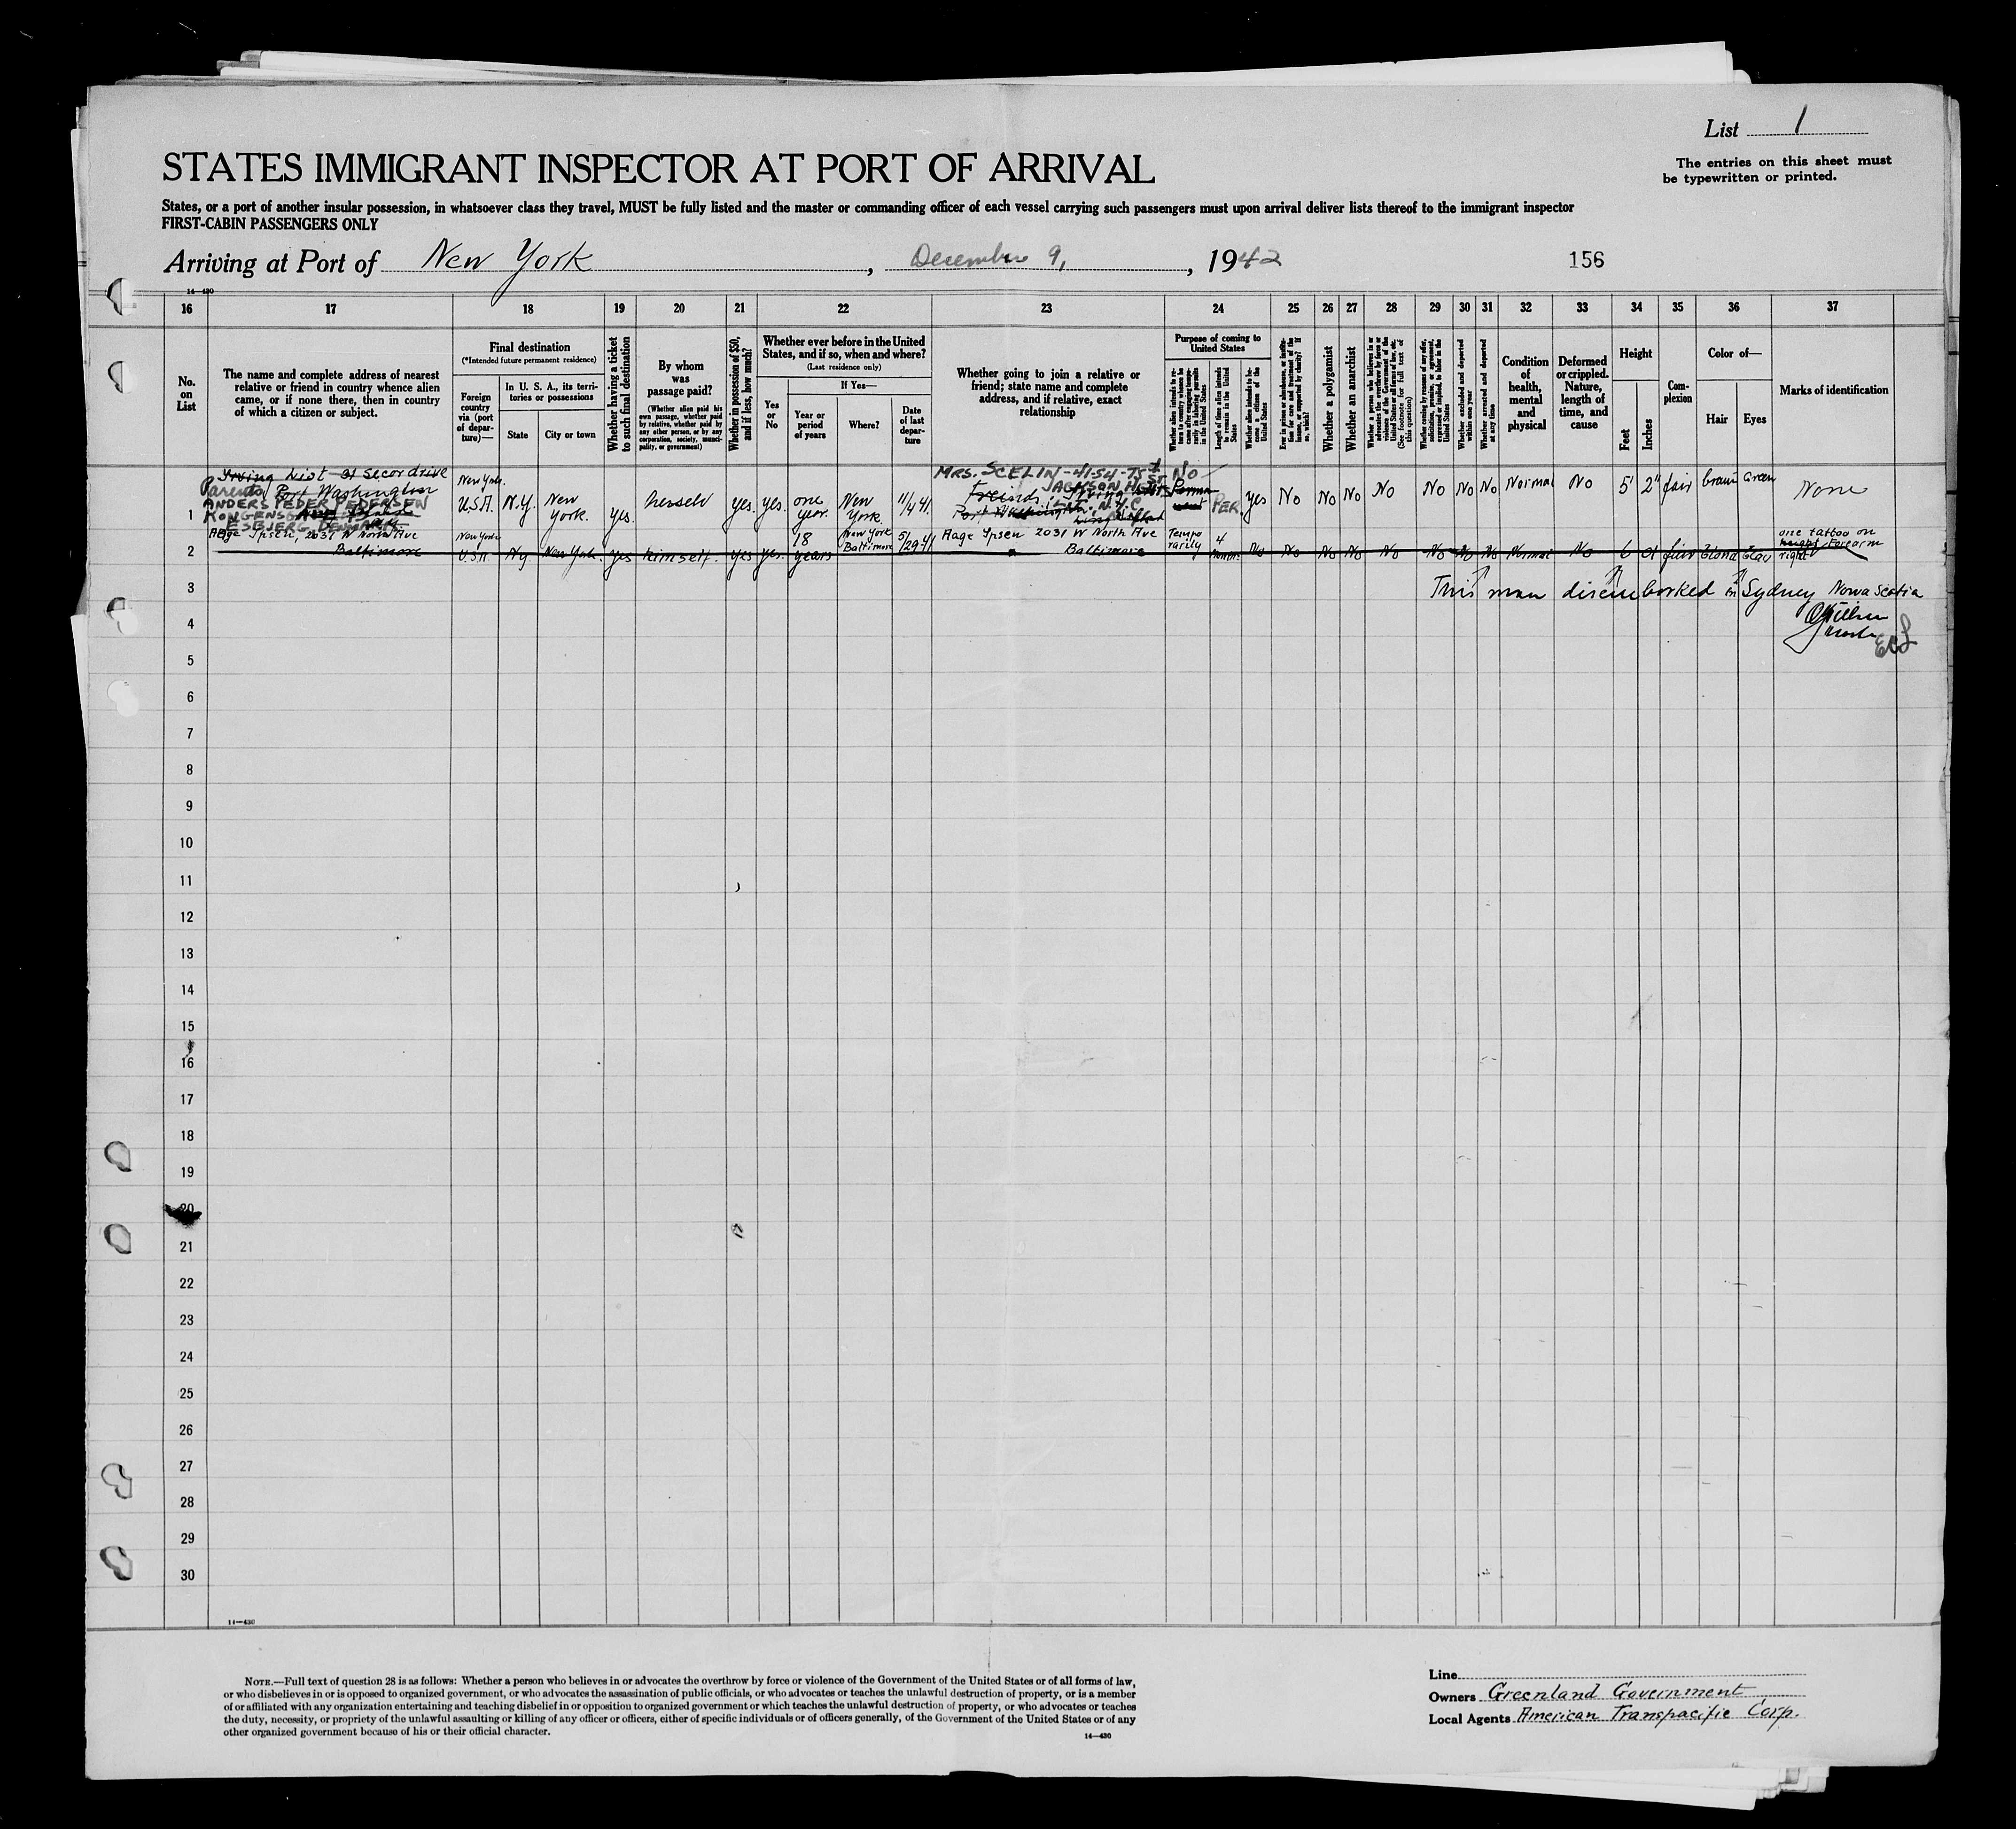 List 1
The entries on this sheet must
be typewritten or printed.
STATES IMMIGRANT INSPECTOR AT PORT OF ARRIVAL
States, or a port of another insular possession, in whatsoever class they travel, MUST be fully listed and the master or commanding officer of each vessel carrying such passengers must upon arrival deliver lists thereof to the immigrant inspector
FIRST-CABIN PASSENGERS ONLY
Arriving at Port of New York, December 9, 1942
156
14—430
16 17 18 19 20 21 22 23 24 25 26 27 28 29 30 31 32 33 34 35 36 37
No. on List
The name and complete address of nearest
relative or friend in country whence alien
came, or if none there, then in country
of which a citizen or subject.
Final destination
(*Intended future permanent residence)
Foreign country via (port of departure)—
In U. S. A., its territories or possessions
State
City or town
Whether having a ticket to such final destination
By whom was passage paid?
(Whether alien paid his own passage, whether paid by relative, whether paid by any other person, or by any corporation, society, municipality, or government)
Whether in possession of $50, and if less, how much?
Whether ever before in the United
States, and if so, when and where?
(Last residence only)
Yes or No
If Yes—
Year or period of years
Where?
Date of last departure
Whether going to join a relative or
friend; state name and complete
address, and if relative, exact
relationship
Purpose of coming to United States
Whether alien intends to return to country whence he came after engaging temporarily in laboring pursuits in the United States
Length of time alien intends to remain in the United States
Whether alien intends to become a citizen of the United States
Ever in prison or almshouse, or institution for care and treatment of the insane, or supported by charity? If so, which?
Whether a polygamist
Whether an anarchist
Whether a person who believes in or advocates the overthrow by force or violence of the Government of the United States or all forms of law, etc. (See footnote for full text of this question)
Whether coming by reason of any offer, solicitation, promise, or agreement, expressed or implied, to labor in the United States
Whether excluded and deported within one year
Whether arrested and deported at any time
Condition of health, mental and physical
Deformed or crippled. Nature, length of time, and cause
Height
Feet
Inches
Complexion
Color of—
Hair
Eyes
Marks of identification
Irving List 21 Secor drive
Parents Port Washington
ANDERS PEDER PEDERSEN
KONGENSG
ESBJERG, DENMARK
1 New York. U.S.A. N.Y. New York. yes. herself yes. yes. one year. New York. 11/4 41.
MRS. SCELIN - 41-54-75 St
JACKSON HGTS
Friends: Irving List N.Y.C
Port Washington
No Permanent PER. yes No No No No No No No Normal No 5' 2" fair brown Green None
2 Aage Ipsen, 2031 W North Ave Baltimore New York U.S.A. N.y. New York. yes himself. yes yes. 18 years New York Baltimore 5/29-41 Aage Ipsen 2031 W North Ave Baltimore Temporarily 4 months. No No No No No No No No Normal No 6 0 fair Blond one tattoo on right Forearm
right
This man disembarked in Sydney Nowa Scotia
3
4
5
6
7
8
9
10
11
12
13
14
15
16
17
18
19
20
21
22
23
24
25
26
27
28
29
30
14—430
NOTE.—Full text of question 28 is as follows: Whether a person who believes in or advocates the overthrow by force or violence of the Government of the United States or of all forms of law,
or who disbelieves in or is opposed to organized government, or who advocates the assassination of public officials, or who advocates or teaches the unlawful destruction of property, or is a member
of or affiliated with any organization entertaining and teaching disbelief in or opposition to organized government or which teaches the unlawful destruction of property, or who advocates or teaches
the duty, necessity, or propriety of the unlawful assaulting or killing of any officer or officers, either of specific individuals or of officers generally, of the Government of the United States or of any
other organized government because of his or their official character.
14—430
Line
Owners Greenland Government
Local Agents American Transpacific Corp.